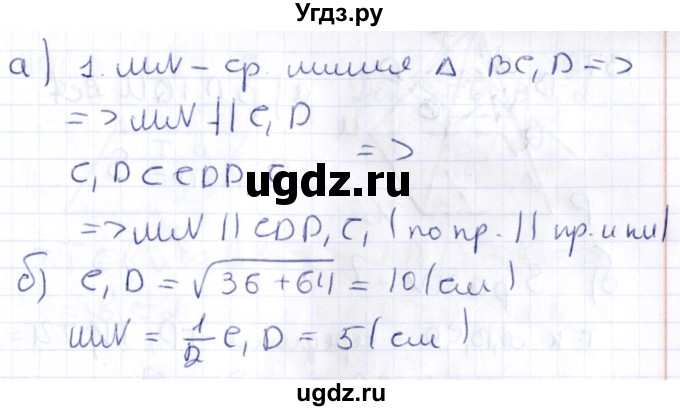 Угдз.ру
а) 1. MN – ср. линия Δ BC₁D =>
=> MN || C₁D
C₁D ⊂ CDD₁C₁ =>
ugdz.ru
=> MN || CDD₁C₁ (по пр. || пр. и пл)
б) C₁D = √36+64 = 10 (см)
ugdz.ru
MN = 1/2 C₁D = 5 (см)
ugdz.ru